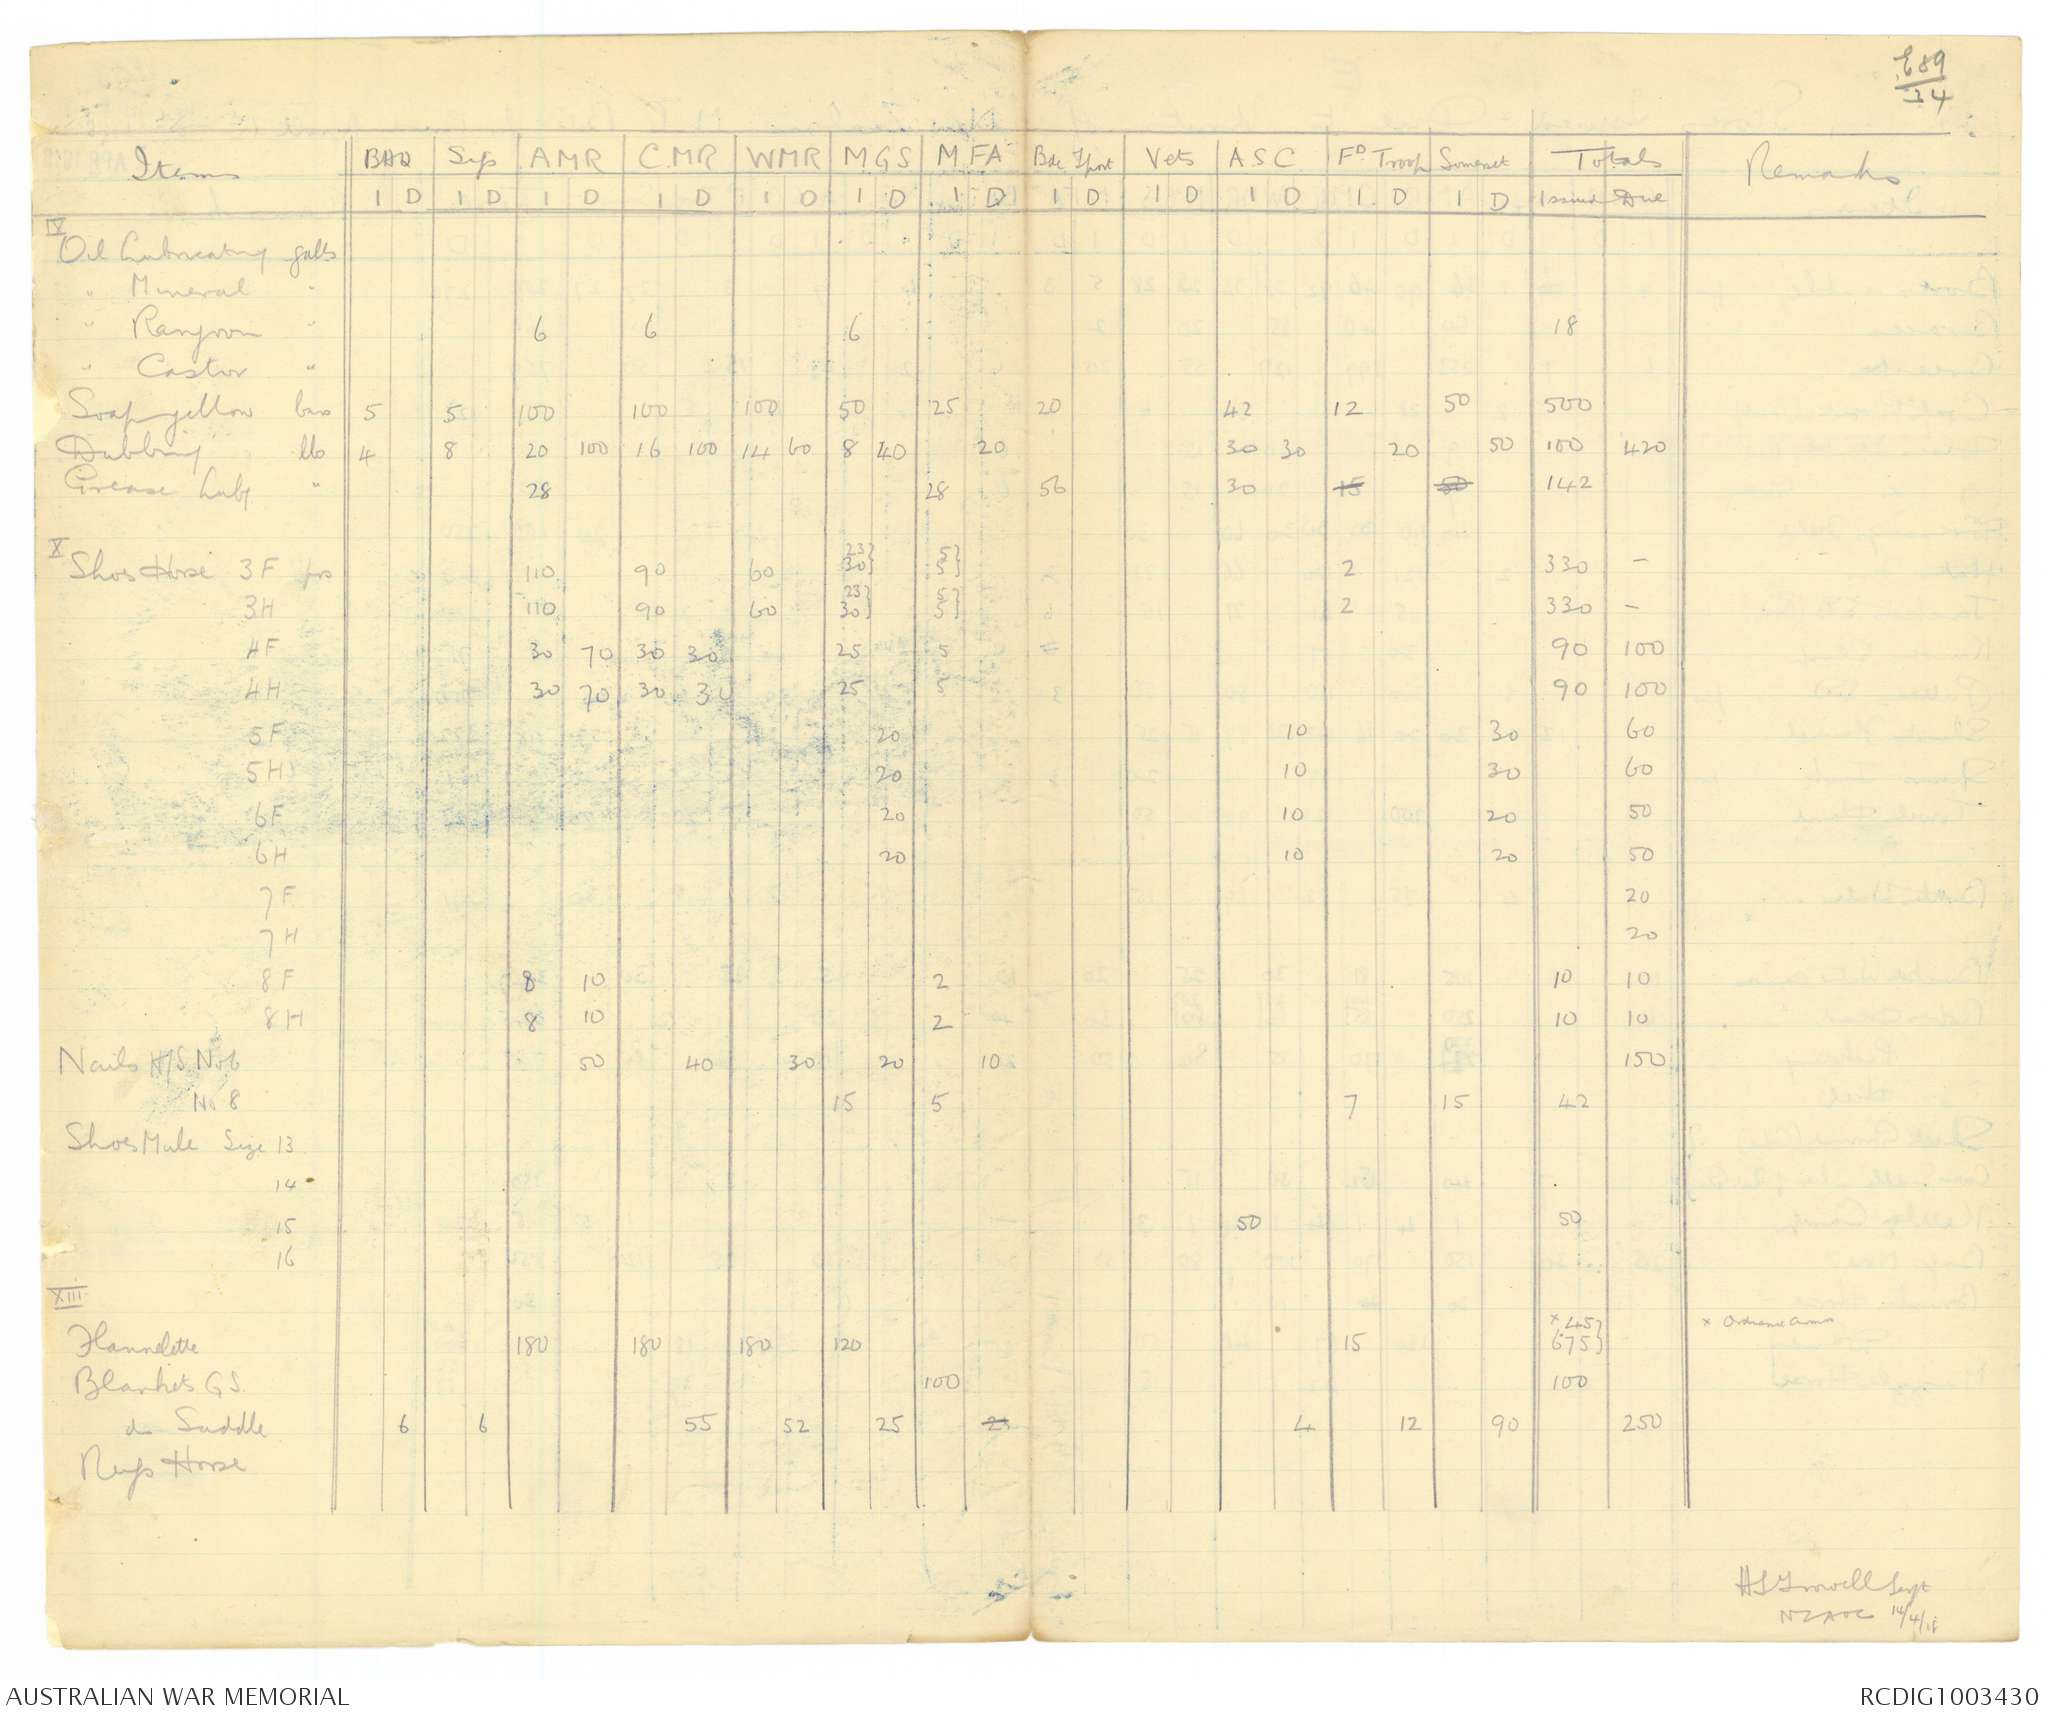 E89
34
Items BHQ Sigs A.M.R C.M.R W.M.R M.G.S M.F.A Bde Tport Vets A S C FD Troop Somerset Totals Remarks
I D I D I D I D I D I D I D I D I D I D I D I D Issued Due
IV
Oil Lubricating galls
" Mineral "
" Rangoon " 6 6 6 18
" Castor "
Soap yellow bars 5 5 100 100 100 50 25 20 42 12 50 500
Dubbing lbs 4 8 20 100 16 100 14 60 8 40 20 30 30 20 50 100 420
Grease Lubg " 28 28 56 30 15 50 142
X
Shoes Horse 3F prs 110 90 60 23} 30} 5} 5} 2 330 -
3H 110 90 60 23} 30} 5} 5} 2 330 -
4F 30 70 30 30 25 5 90 100
4H 30 70 30 30 25 5 90 100
5F 20 10 30 60
5H 20 10 30 60
6F 20 10 20 50
6H 20 10 20 50
7F 20
7H 20
8F 8 10 2 10 10
8H 8 10 2 10 10
Nails H/S No 6 50 40 30 20 10 150
No 8 15 5 7 15 42
Shoes Mule Size 13
14
15 50 50
16
XIII
x 45} x Ordnance
Flannelette 180 180 180 120 15 675}
Blankets G S. 100 100
do Saddle 6 6 55 52 25 25 4 12 90 250
Rugs Horse
Sergt
NZAOC 14/4/18
AUSTRALIAN WAR MEMORIAL RCDIG1003430